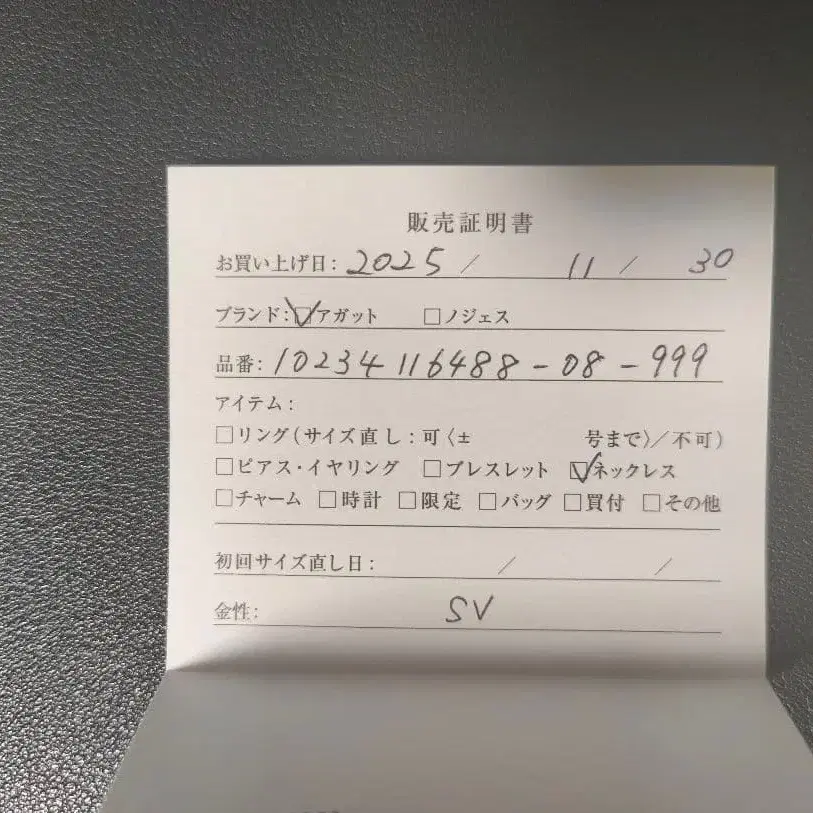 販売証明書
お買い上げ日: 2025 / 11 / 30
ブランド: ☑アガット □ノジェス
品番: 10234116488-08-999
アイテム:
□リング(サイズ直し:可〈± 号まで〉/不可)
□ピアス・イヤリング □ブレスレット ☑ネックレス
□チャーム □時計 □限定 □バッグ □買付 □その他
初回サイズ直し日: / /
金性: SV